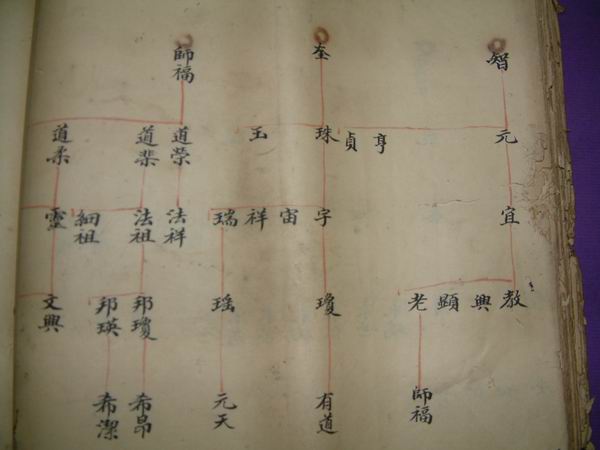 智 奎 師福
元 亨 貞 珠 玉 道榮 道棐 道柔
宜 字 宙 祥 瑞 法祥 法祖 細祖 靈
教 興 顯 老 瓊 瑶 邦瓊 邦瑛 文興
師福 有道 元天 希昂 希潔